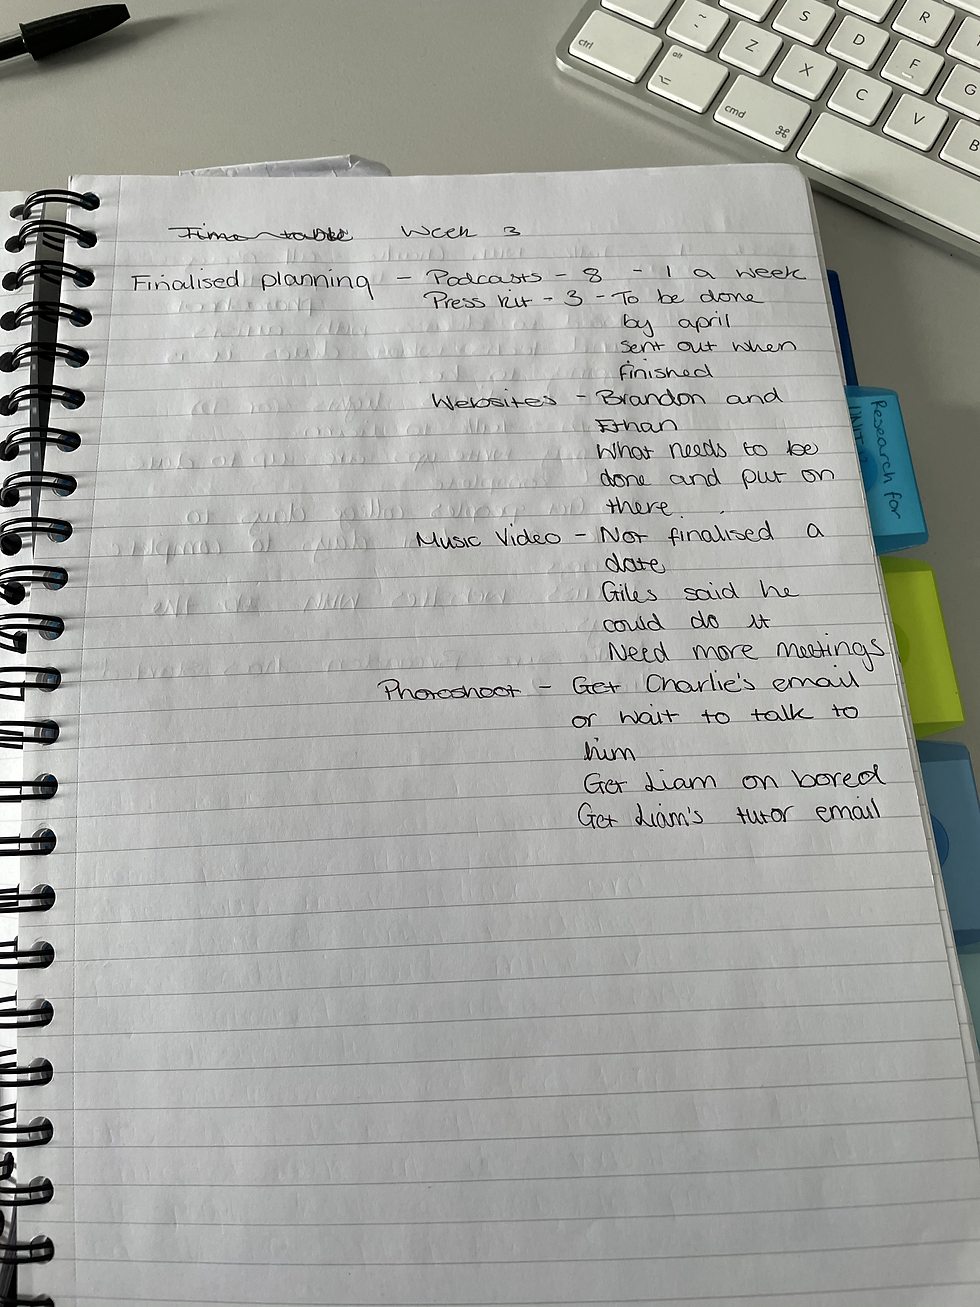 ctrl
alt
cmd
S
D
F
G
R
Z
X
C
V
B
~~Time table~~ Week 3
Finalised planning – Podcasts – 8 – 1 a week
Press kit – 3 – To be done
by april
sent out when
finished
Websites – Brandon and
Ethan
What needs to be
done and put on
there.
Music Video – Not finalised a
date
Giles said he
could do it
Need more meetings
Photoshoot – Get Charlie's email
or wait to talk to
him
Get Liam on bored
Get Liam's tutor email
Research for